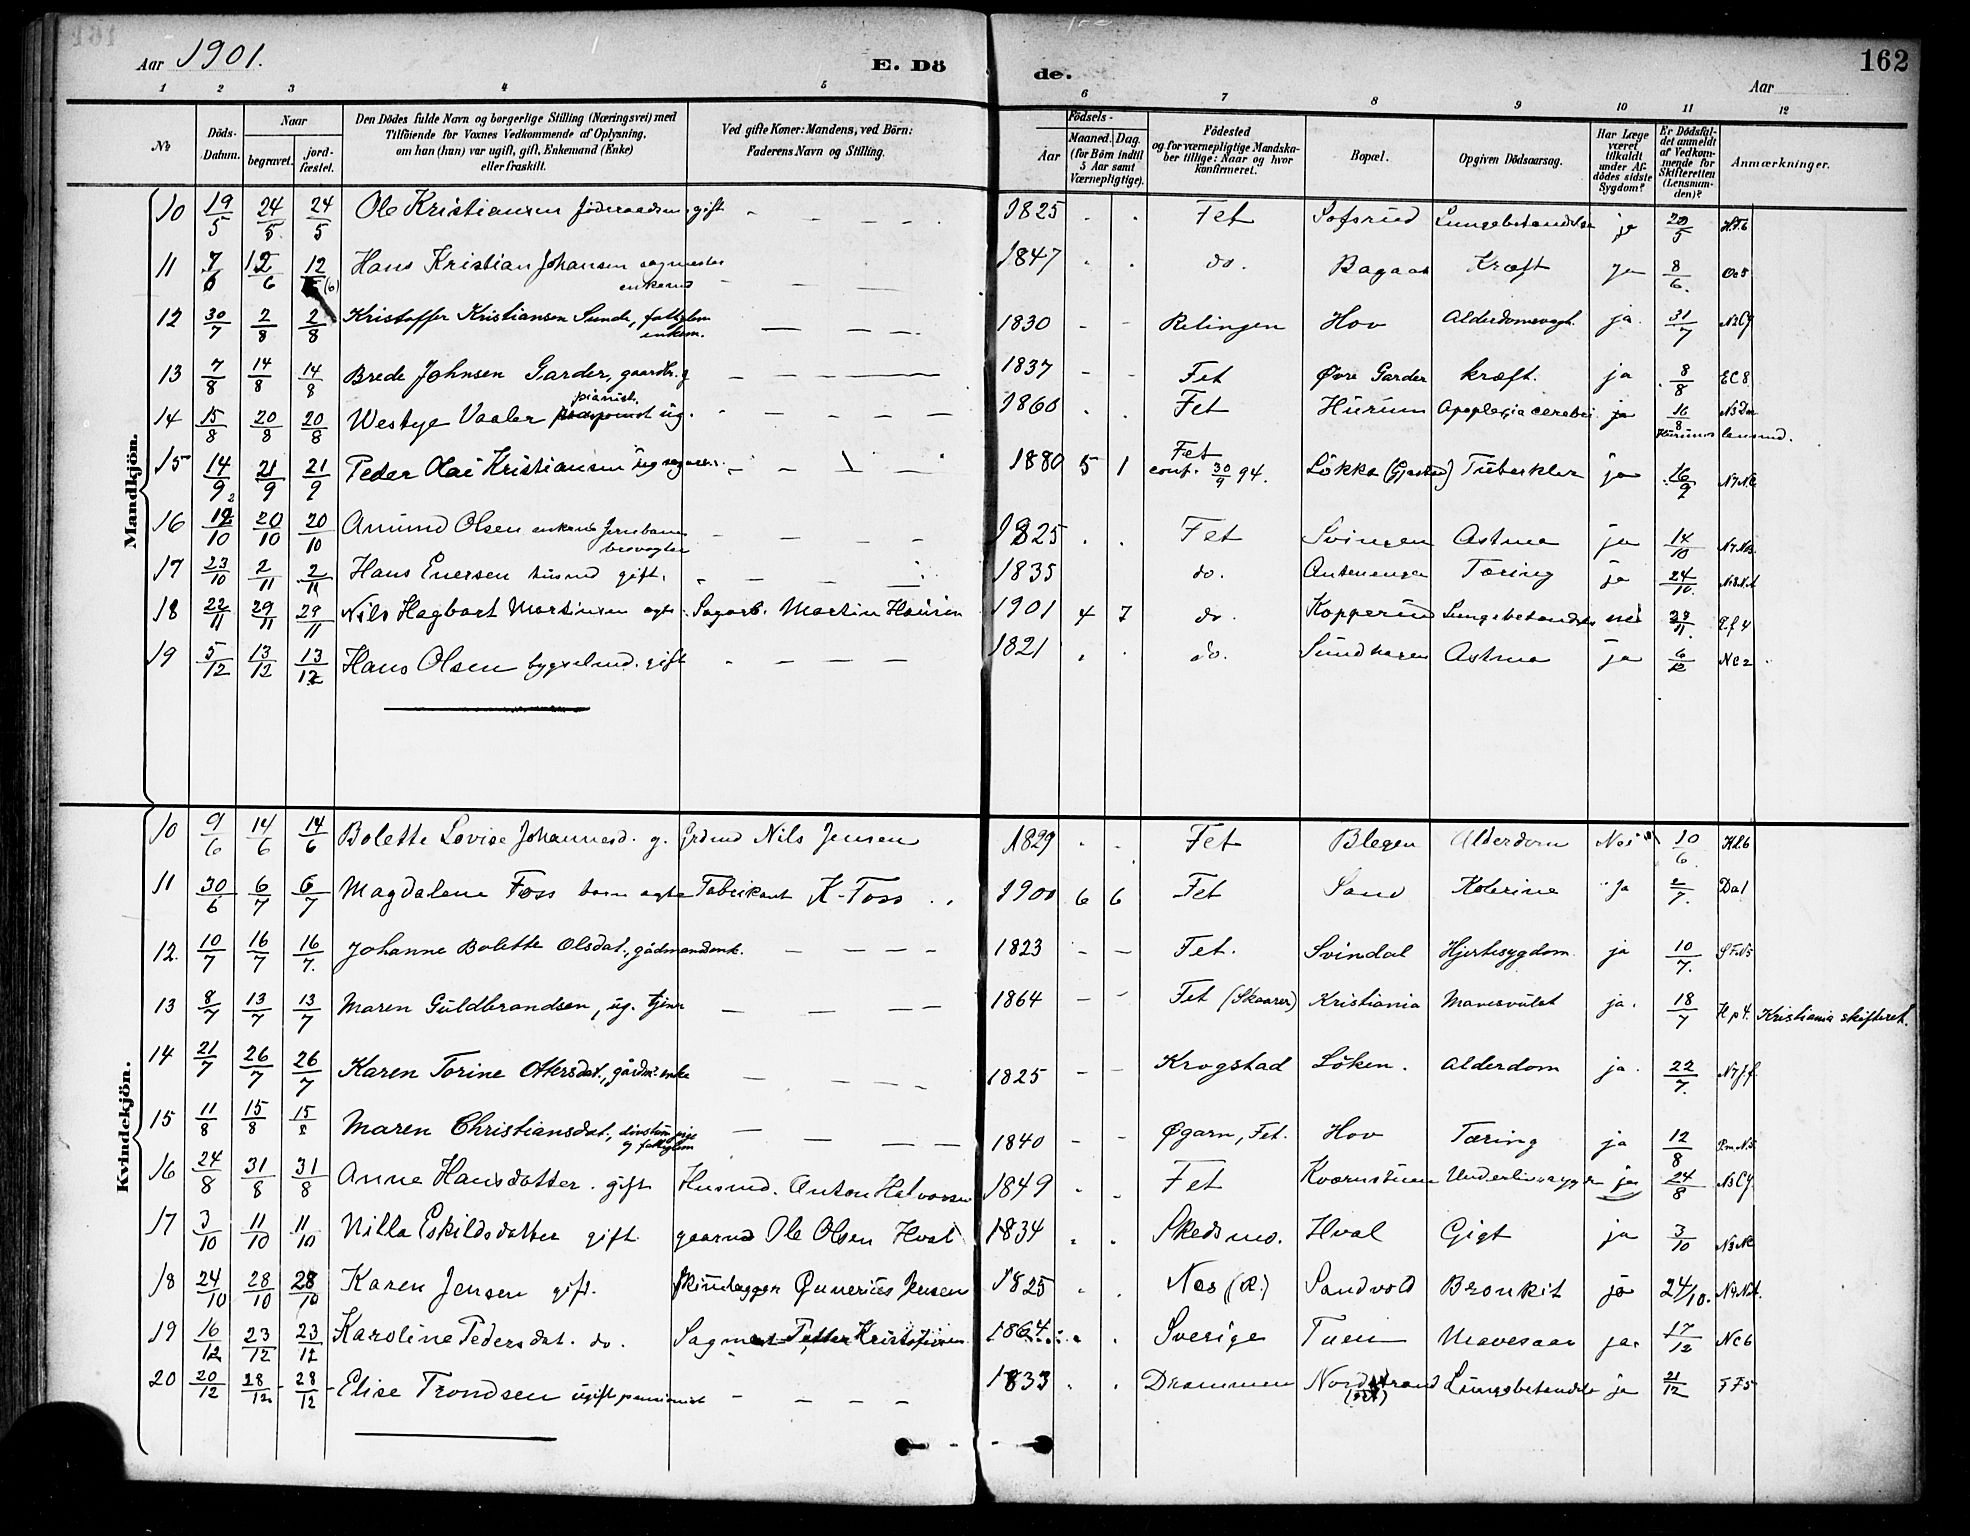 Aar 1901. E. Dö de. Aar 162
1 2 3 4 5 6 7 8 9 10 11 12
No Döds-Datum. Naar begravet. jord-fæstet. Den Dödes fulde Navn og borgerlige Stilling (Næringsvei) med Tilföiende for Voxnes Vedkommende af Oplysning, om han (hun) var ugift, gift, Enkemand (Enke) eller fraskilt. Ved gifte Koner: Mandens, ved Börn: Faderens Navn og Stilling. Födsels- Aar Maaned. Dag. (for Börn indtil 5 Aar samt Værnepligtige). Födested og for værnepligtige Mandskaber tillige: Naar og hvor konfirmeret. Bopæl. Opgiven Dödsaarsag. Har Læge været tilkaldt under Afdödes sidste Sygdom? Er Dödsfaldet anmeldt af Vedkommende for Skifteretten (Lensmanden)? Anmærkninger.
Mandkjön.
10 19/5 24/5 24/5 Ole Kristiansen gift - - - - 1825 - - Fet Lungebetændelse ja 20/5
11 7/6 12/6 12/6 (6) Hans Kristian Johansen sagmester enkem. - - - - 1847 - - do. Bagaas Kræft ja 8/6
12 30/7 2/8 2/8 Kristoffer Kristiansen Sunde, fattiglem enkem. - - - - 1830 - - Relingen Hov ja 31/7
13 7/8 14/8 14/8 Brede Johnsen Garder, gaardbr. g - - - 1837 - - Fet Øvre Garder kræft. ja 8/8 EC8
14 15/8 20/8 20/8 Westye Vaaler pianist. ug. - - - - 1860 - - Fet Hurum Apoplexia cerebri ja 16/8 Hurums lensmd.
15 14/9 21/9 21/9 Peder Olai Kristiansen ug - - - 1880 5 1 Fet conf. 30/9 94. Løkka Tuberkler ja 16/9
16 12/10 20/10 20/10 Amund Olsen enkem. Jernbanebevogter - - - - 1825 - - Fet Svingen Astma ja 14/10
17 23/10 2/11 2/11 Hans Enersen husmd gift. - - - - 1835 do. Tæring ja 24/10
18 22/11 29/11 29/11 Nils Hagbart Martinsen ægte Sagarb. Martin Hansen 1901 4 7 do. Kopperud Lungebetændelse nei 23/11
19 5/12 13/12 13/12 Hans Olsen bygselmd. gift - - - - 1821 - - do. Sundhagen Astma ja 6/12 NC2
Kvindekjön.
10 9/6 14/6 14/6 Bolette Lovise Johannesd. g. Grdmd Nils Jensen 1829 - - Fet Blegen Alderdom Nei 10/6
11 30/6 6/7 6/7 Magdalene Foss barn ægte Fabrikant K. Foss 1900 6 6 Fet Sand Kolerine ja 2/7 Da1
12. 10/7 16/7 16/7. Johanne Bolette Olsdat., gådmandsenk. - - - - 1823 - - Fet. Svindal Hjertesygdom ja 10/7.
13 8/7 13/7 13/7 Maren Guldbrandsen, ug. tjener - - - - 1864 - - Fet (Skaarer) Kristiania Mavesvulst ja. 18/7 Kristiania skifteret.
14 21/7 26/7 26/7 Karen Torine Ottersdat., gårdm. enke - - - - 1825 - - Krogstad Løken. Alderdom ja. 22/7.
15 11/8 15/8 15/8 Maren Christiansdat., og fattiglem - - - - 1840 - - Øgarn, Fet. Hov Tæring ja 12/8
16 24/8 31/8 31/8 Anne Hansdatter. gift Husmd. Anton Halvorsen 1849 - - Fet Kvernstuen ja 24/8
17 3/10 11/10 11/10 Nilla Eskildsdatter gift gaarmd Ole Olsen Hval 1834 - - Skedsmo. Hval Gigt ja 3/10
18 24/10 28/10 28/10 Karen Jensen gift. Gunerius Jensen 1825 - - Nes (R.) Sandvold Bronkit ja 24/10.
19 16/12 23/12 23/12 Karoline Pedersdat. do. Sagmest Petter Kristofersen 1864 - - Sverige Tuen Mavesaar ja. 17/12 NC6
20 20/12 28/12 28/12 Elise Trondsen ugift pensionist - - - - 1833 - - Drammen Nordstrand Lungebetændelse ja 21/12 FF5